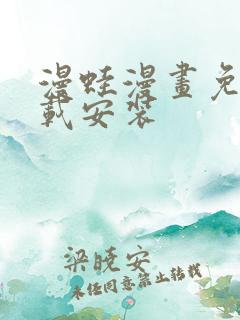 漫蛙漫畫免
載安裝
梁曉安
未经同意禁止转载